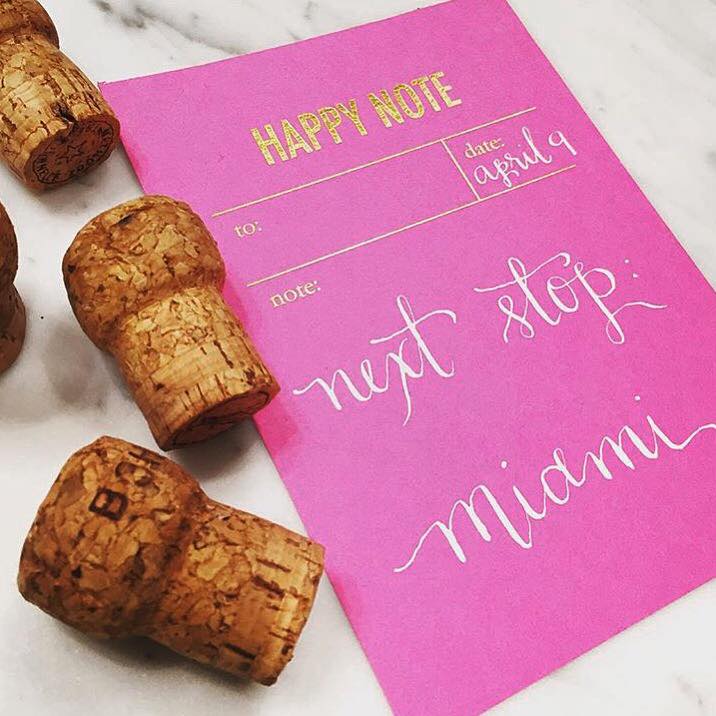 HAPPY NOTE
date:
april 9
to:
note:
next stop:
miami